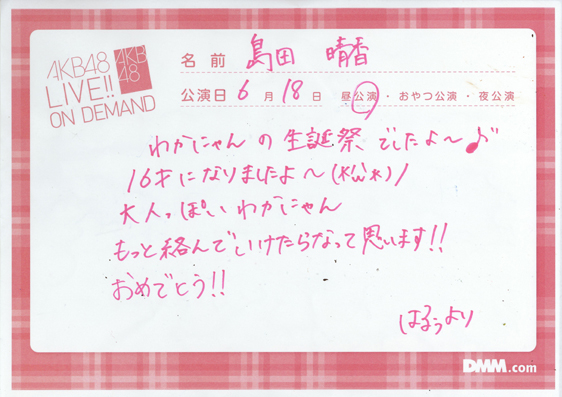 AKB48
LIVE!!
ON DEMAND
AKB
48
名前 島田 晴香
公演日 6月18日 昼公演・おやつ公演・夜公演
わかにゃんの生誕祭でしたよ〜♪
16才になりましたよ〜(*´ω`*)ノ
大人っぽいわかにゃん
もっと絡んでいけたらなって思います!!
おめでとう!!
はるぅより
DMM.com